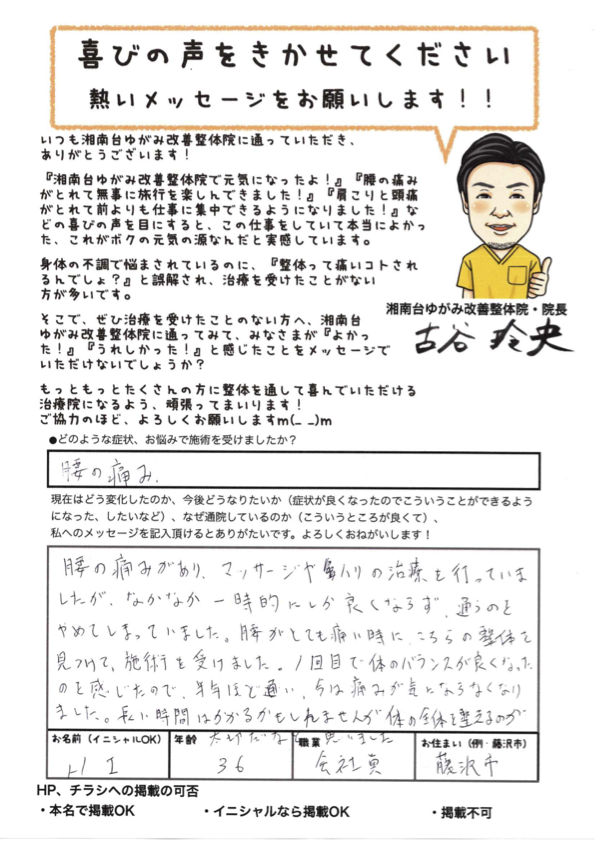 喜びの声をきかせてください
熱いメッセージをお願いします！！
いつも湘南台ゆがみ改善整体院に通っていただき、
ありがとうございます！
『湘南台ゆがみ改善整体院で元気になったよ！』『腰の痛み
がとれて無事に旅行を楽しんできました！』『肩こりと頭痛
がとれて前よりも仕事に集中できるようになりました！』な
どの喜びの声を目にすると、この仕事をしていて本当によかっ
た、これがボクの元気の源なんだと実感しています。
身体の不調で悩まされているのに、『整体って痛いコトされ
るんでしょ？』と誤解され、治療を受けたことがない
方が多いです。
そこで、ぜひ治療を受けたことのない方へ、湘南台
ゆがみ改善整体院に通ってみて、みなさまが『よかっ
た！』『うれしかった！』と感じたことをメッセージで
いただけないでしょうか？
もっともっとたくさんの方に整体を通して喜んでいただける
治療院になるよう、頑張ってまいります！
ご協力のほど、よろしくお願いしますm(_ _)m
湘南台ゆがみ改善整体院・院長
古谷 玲央
●どのような症状、お悩みで施術を受けましたか？
腰の痛み.
現在はどう変化したのか、今後どうなりたいか（症状が良くなったのでこういうことができるよう
になった、したいなど）、なぜ通院しているのか（こういうところが良くて）、
私へのメッセージを記入頂けるとありがたいです。よろしくおねがいします！
腰の痛みがあり、マッサージや鍼の治療を行っていま
したが、なかなか一時的にしか良くならず、通うのを
やめてしまっていました。腰がとても痛い時に、こちらの整体を
見つけて、施術を受けました。1回目で体のバランスが良くなった
のを感じたので、半年ほど通い、今は痛みが気にならなくなり
ました。長い時間はかかるかもしれませんが体の全体を整えるのが
大切だなと思いました
お名前（イニシャルOK） 年齢 職業 お住まい（例・藤沢市）
H I 36 会社員 藤沢市
HP、チラシへの掲載の可否
・本名で掲載OK ・イニシャルなら掲載OK ・掲載不可